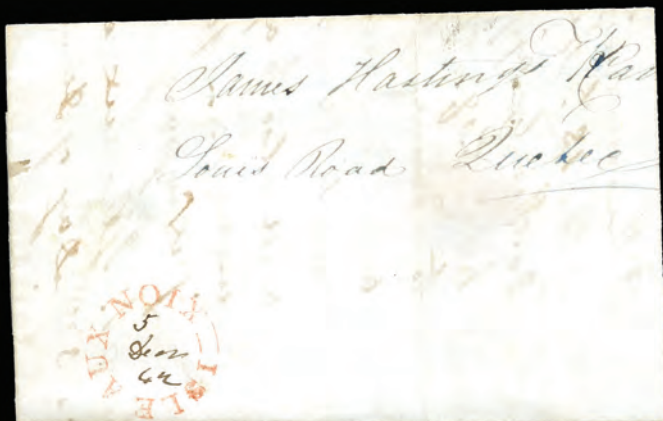 James Hastings
Louis Road Quebec
ISLE AUX NOIX
5